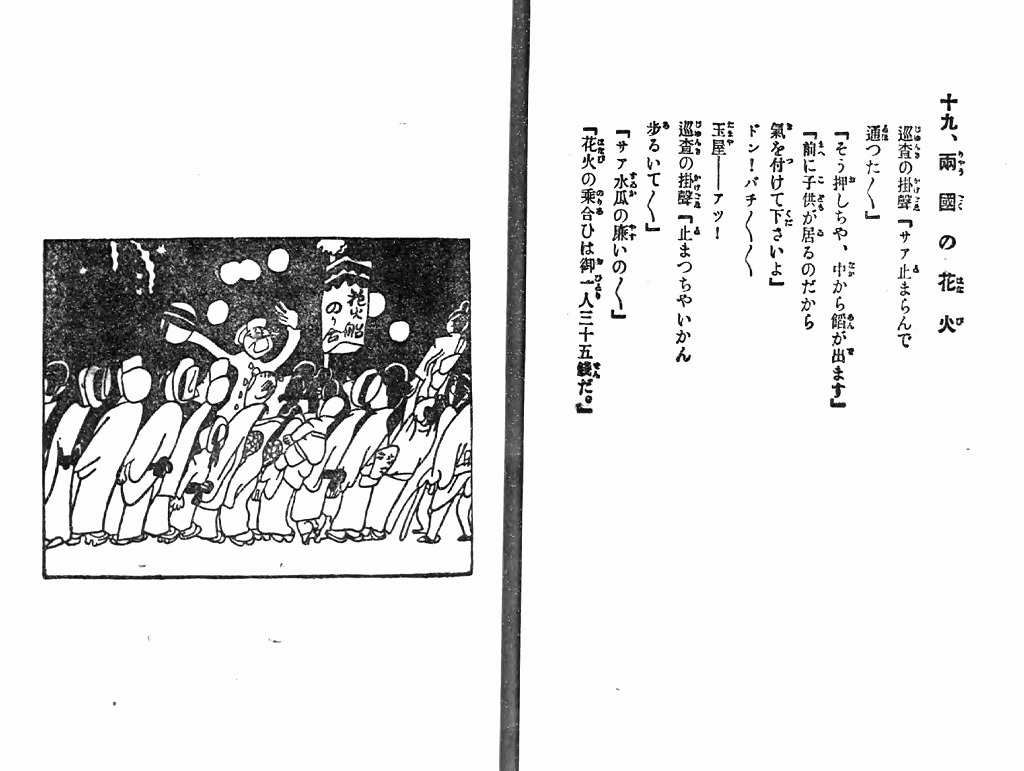 十九、兩國の花火
巡査の掛聲『サァ止まらんで
通つた〱』
『そう押しちや、中から餡が出ます』
『前に子供が居るのだから
氣を付けて下さいよ』
ドン！パチ〱〱
玉屋――アツ！
巡査の掛聲『止まつちやいかん
歩るいて〱』
『サァ水瓜の廉いの〱』
『花火の乘合ひは御一人三十五錢だ。』
花火船
のり合